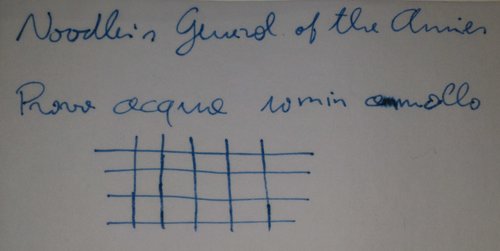 Noodler's General of the Armies
Prova acqua 10 min ammollo